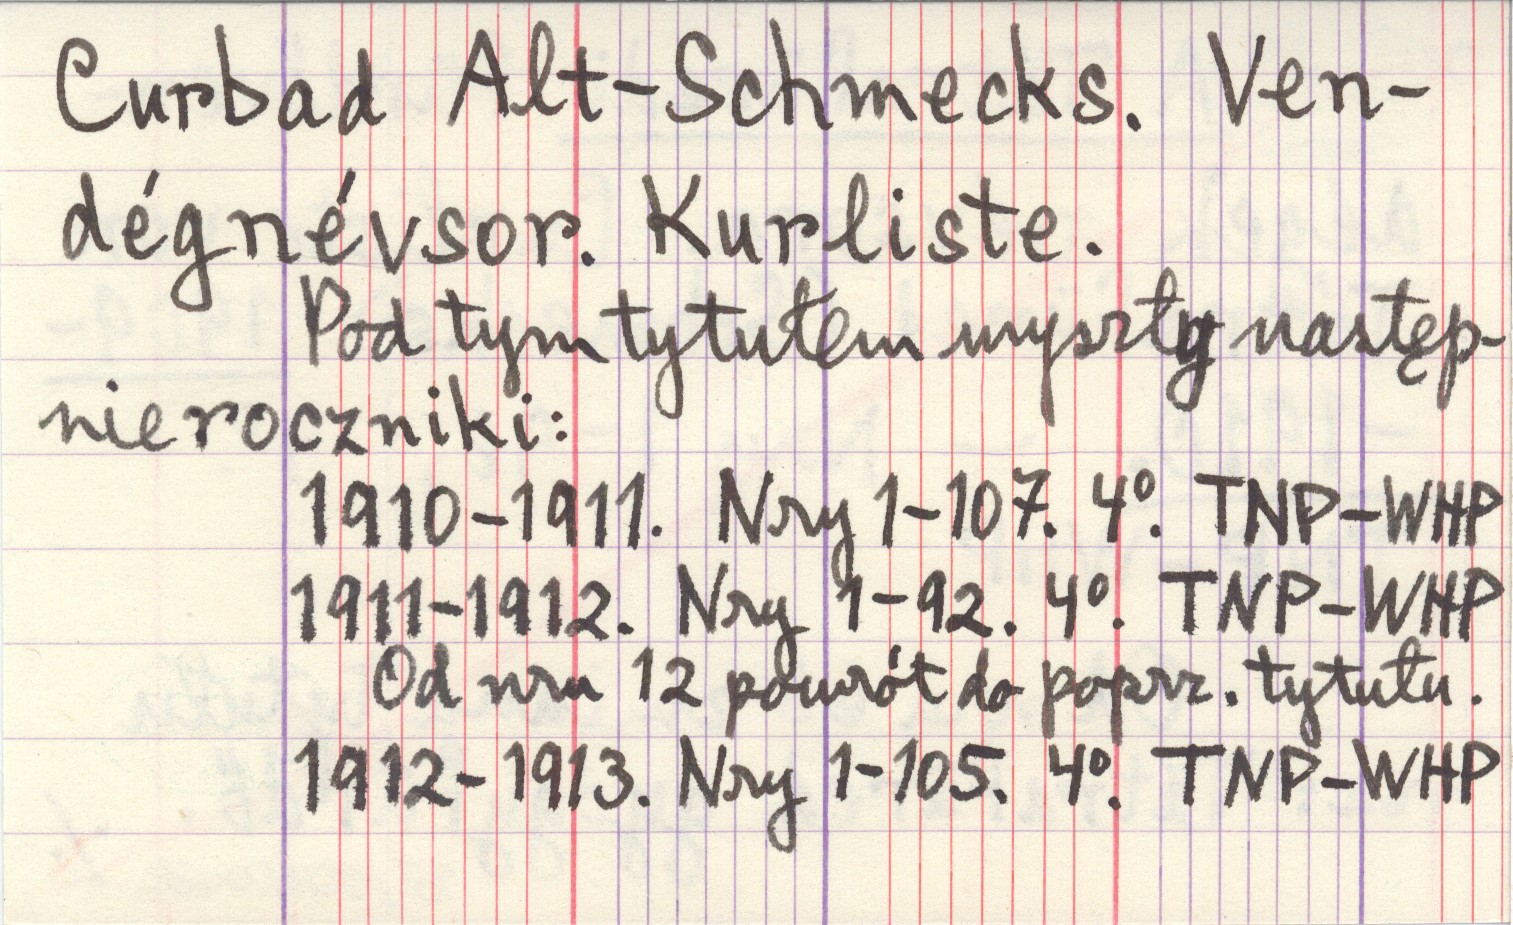 Curbad Alt-Schmecks. Ven-
dégnévsor. Kurliste.
Pod tym tytułem wyszły następ-
nie roczniki:
1910-1911. Nry 1-107. 4º. TNP-WHP
1911-1912. Nry 1-92. 4º. TNP-WHP
Od nru 12 powrót do poprz. tytułu.
1912-1913. Nry 1-105. 4º. TNP-WHP